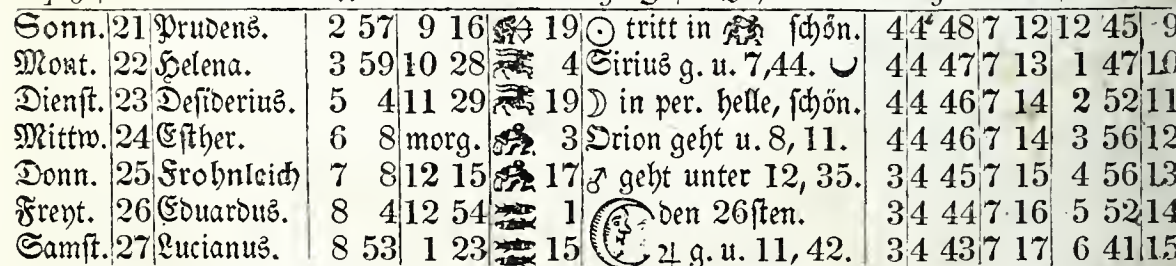 Sonn. 21 Prudens. 2 57 9 16 19 ☉ tritt in ſchön. 4 4 48 7 12 12 45 9
Mont. 22 Helena. 3 59 10 28 4 Sirius g. u. 7,44. 4 4 47 7 13 1 47 10
Dienſt. 23 Deſiderius. 5 4 11 29 19 ☽ in per. helle, ſchön. 4 4 46 7 14 2 52 11
Mittw. 24 Eſther. 6 8 morg. 3 Orion geht u. 8, 11. 4 4 46 7 14 3 56 12
Donn. 25 Frohnleich 7 8 12 15 17 ♂ geht unter 12, 35. 3 4 45 7 15 4 56 13
Freyt. 26 Eduardus. 8 4 12 54 1 den 26ſten. 3 4 44 7 16 5 52 14
Samſt. 27 Lucianus. 8 53 1 23 15 ♃ g. u. 11, 42. 3 4 43 7 17 6 41 15